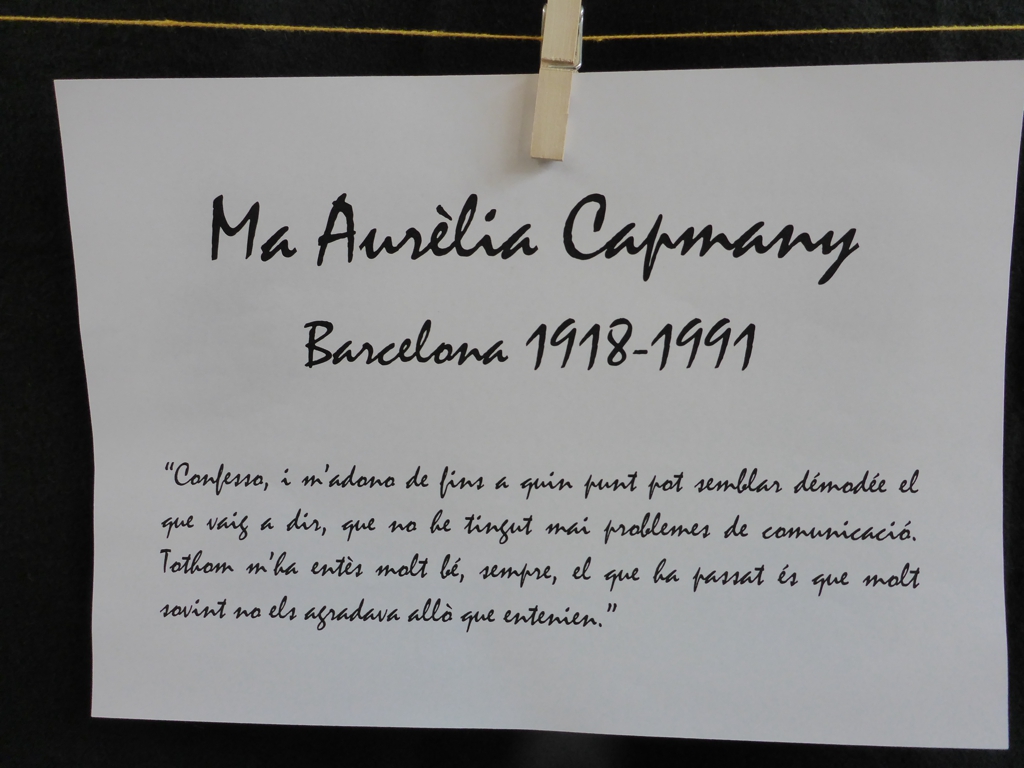 Ma Aurèlia Capmany
Barcelona 1918-1991
“Confesso, i m'adono de fins a quin punt pot semblar démodée el
que vaig a dir, que no he tingut mai problemes de comunicació.
Tothom m'ha entès molt bé, sempre, el que ha passat és que molt
sovint no els agradava allò que entenien.”